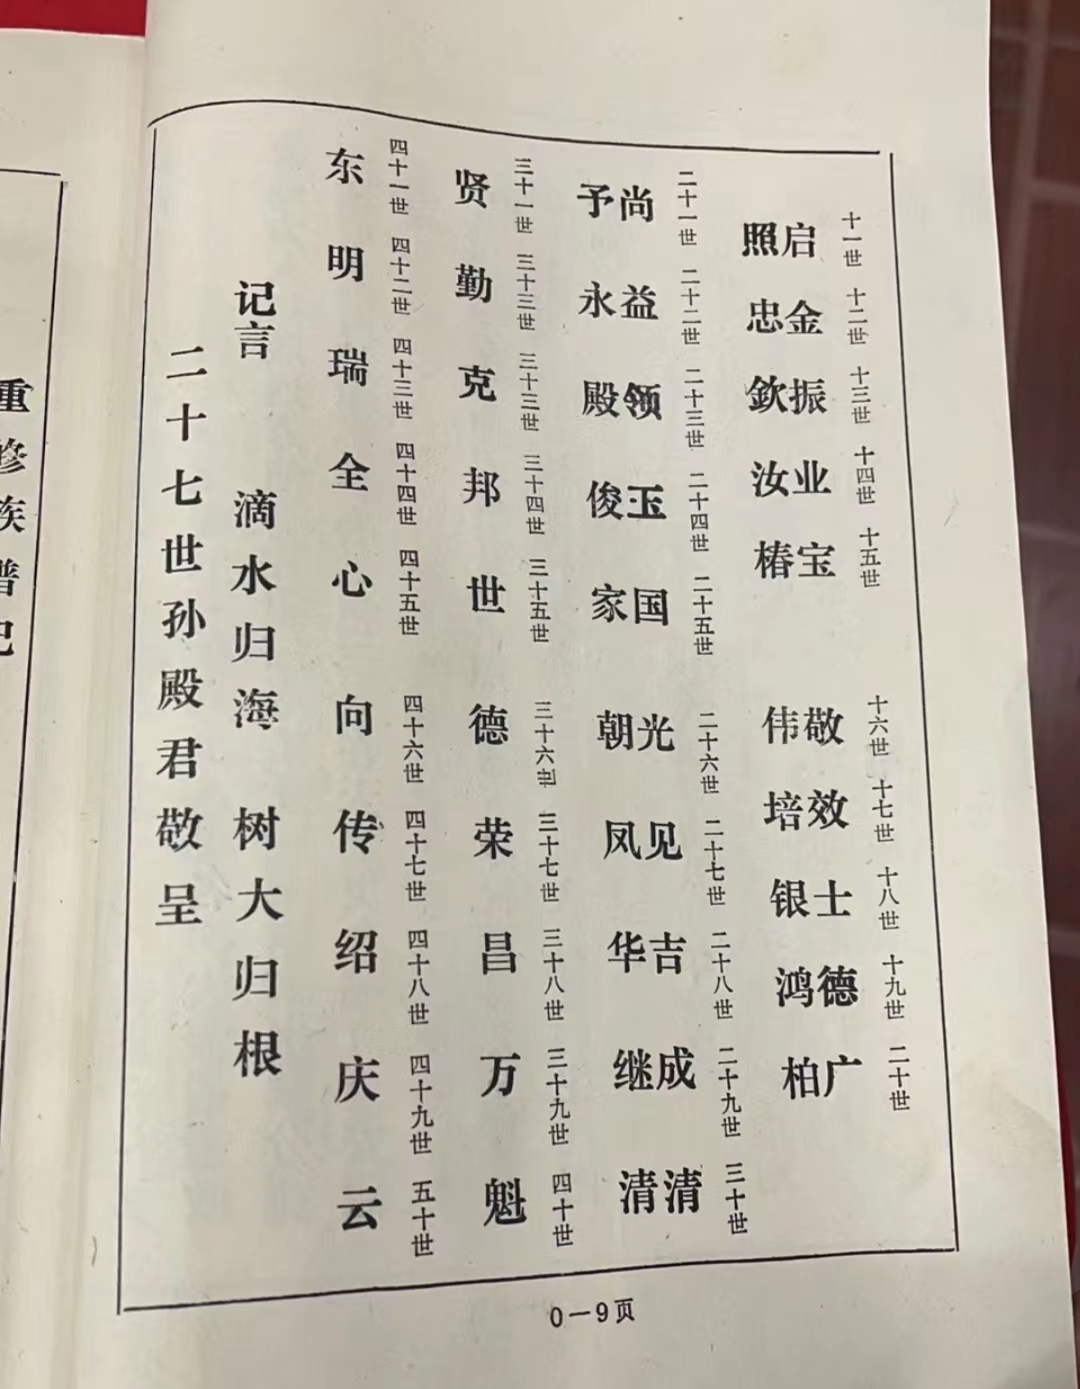 十一世 十二世 十三世 十四世 十五世 十六世 十七世 十八世 十九世 二十世
启金振业宝 敬效士德广
照忠欽汝椿 伟培银鸿柏
二十一世 二十二世 二十三世 二十四世 二十五世 二十六世 二十七世 二十八世 二十九世 三十世
尚益领玉国 光见吉成清
予永殿俊家 朝凤华继清
三十一世 三十三世 三十三世 三十四世 三十五世 三十六世 三十七世 三十八世 三十九世 四十世
贤勤克邦世 德荣昌万魁
四十一世 四十二世 四十三世 四十四世 四十五世 四十六世 四十七世 四十八世 四十九世 五十世
东明瑞全心 向传绍庆云
记言 滴水归海 树大归根
二十七世孙殿君敬呈
0－9页
重修族谱记